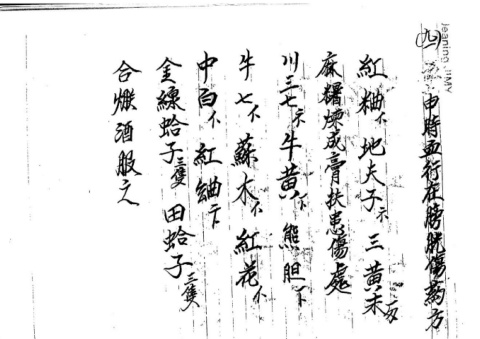 Jeanino JIMY
(九) 申時血行在膀胱傷葯方
紅 地夫子 三黃末
麻糬煉成膏扶患傷處
川三七 牛黃 熊胆
牛七 蘇木 紅花
中白 紅
金線蛤子三隻 田蛤子三隻
合燉酒服之